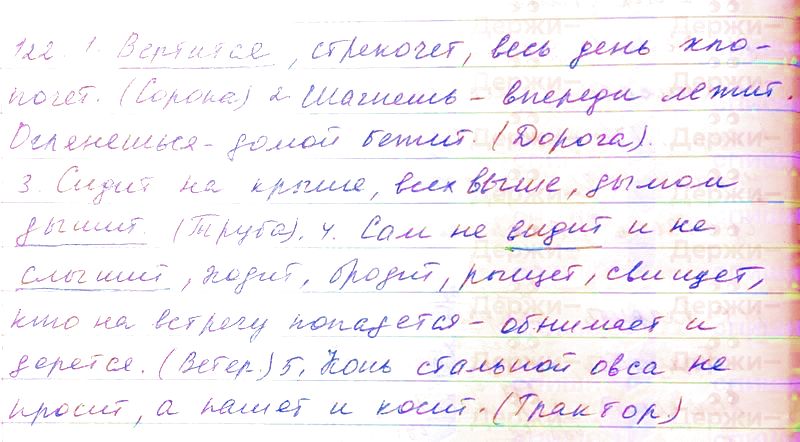 122. 1. Вертится, стрекочет, весь день хло-
почет. (Сорока) 2 Шагнешь - впереди лежит.
Оглянешься - домой бежит. (Дорога).
3. Сидит на крыше, всех выше, дымом
дышит. (Труба). 4. Сам не видит и не
слышит, ходит, бродит, рыщет, свищет,
кто на встречу попадется - обнимает и
дерется. (Ветер.) 5. Конь стальной овса не
просит, а пашет и косит. (Трактор)